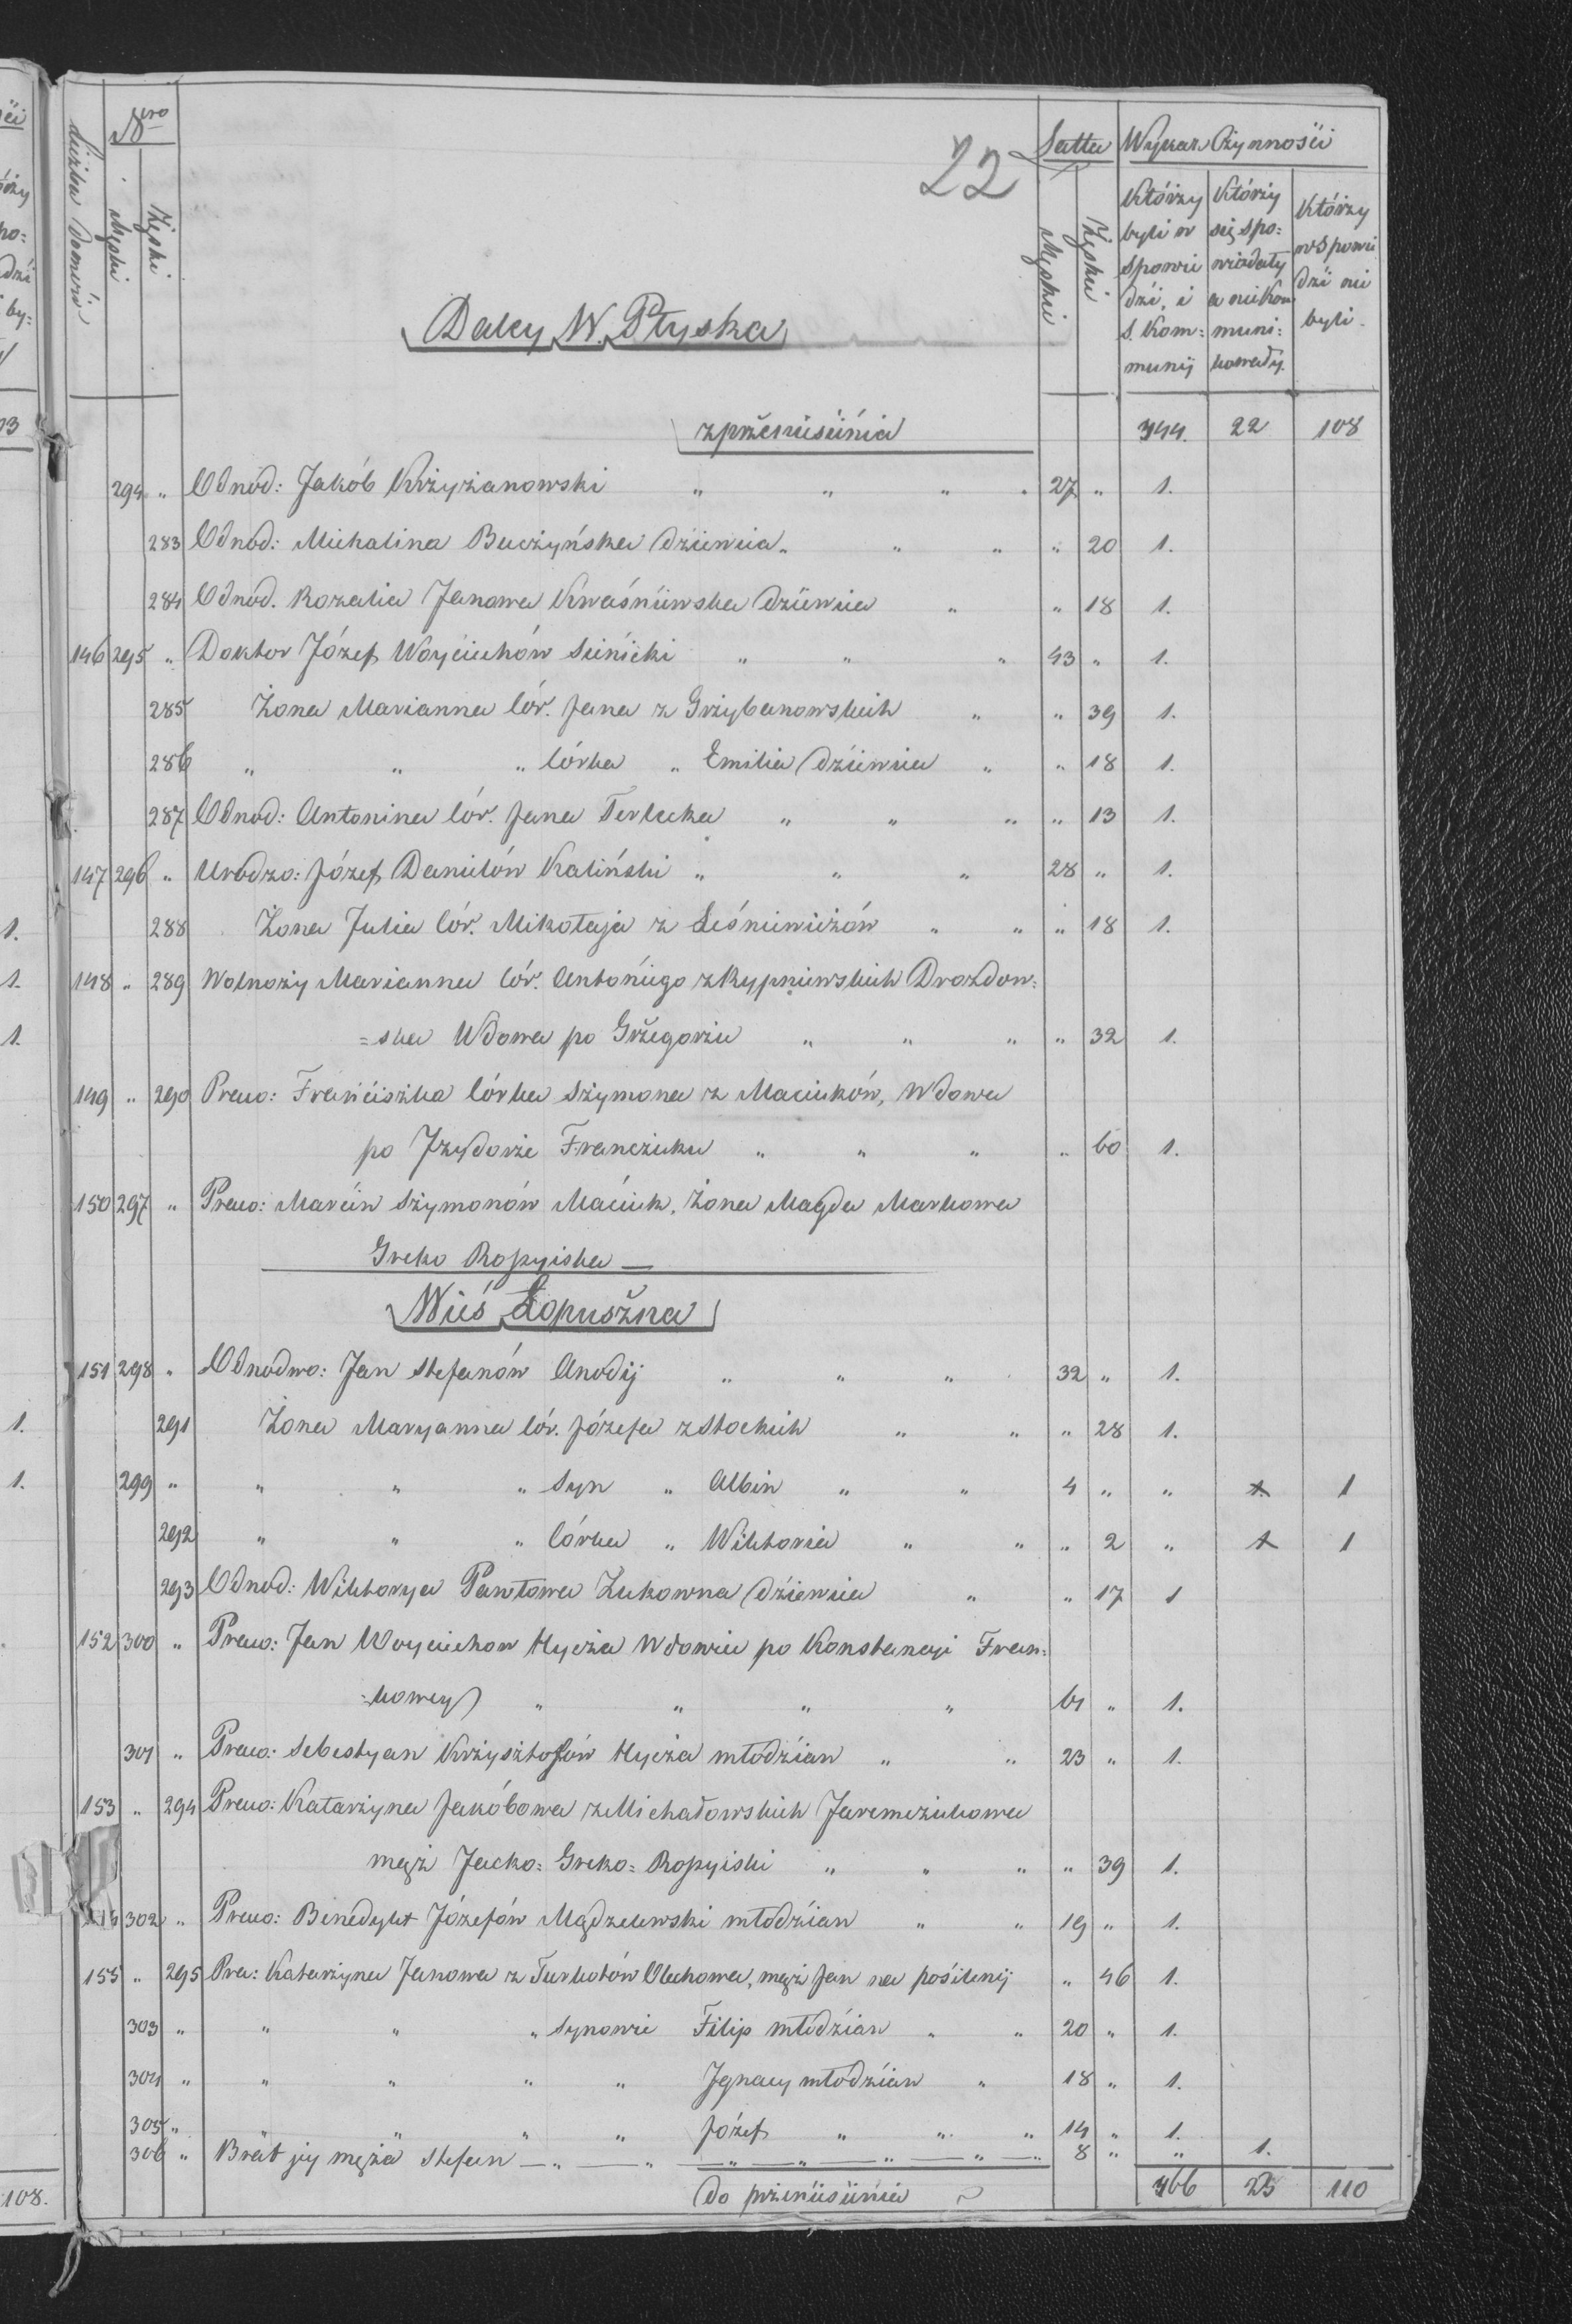 22
Liczba Domów
Nro
Męski
Żęski
Latta
Męskie
Żęskie
Wykaz Czynnośći
Którzy byli w spowiedźi, i S. Kommunij
Którzy się spowiadały a niekommunikowały.
Którzy w spowiedźi nie byli.
Daley W. Płyska
z przeniesienia 344. 22 108
294 „ Odnod: Jakób Krzyżanowski „ „ „ „ 27 „ 1.
283 Odnod: Michalina Buczyńska dziewica „ „ „ „ 20 1.
284 Odnod. Rozalia Janowa Kwaśniewska dziewica „ „ 18 1.
146 295 „ Doktor Józef Woyciechów Sienicki „ „ „ 43 „ 1.
285 Żona Marianna Cór. Jana z Grzybanowskich „ „ 39 1.
286 „ „ „ Córka „ Emilia dziewica „ „ 18 1.
287 Odnod: Antonina Cór. Jana Terlecka „ „ „ „ 13 1.
147 296 „ Urodzo: Józef Daniłów Kaliński „ „ „ 28 „ 1.
288 Żona Julia Cór. Mikołaja z Leśniewiczów „ „ „ 18 1.
148 „ 289 Wolnoży Marianna Cór. Antoniego z Rypniewskich Drozdow=
=ska Wdowa po Grzegorzu „ „ „ „ 32 1.
149 „ 290 Praco: Franciszka Córka Szymona z Maciuków, Wdowa
po Jzydorze Franczuku „ „ „ „ 60 1.
150 297 „ Praco: Marcin Szymonów Maciuk, Żona Magda Markowa
Greko Rossyiska —
Wieś Łopuszna
151 298 „ Odnodwo: Jan Stefanów Anodij „ „ „ 32 „ 1.
291 Żona Maryanna Cór. Józefa z Stockich „ „ „ 28 1.
299 „ „ „ „ Syn „ Albin „ „ 4 „ „ 1
292 „ „ „ Córka „ Wiktoria „ „ „ 2 „ 1
293 Odnod: Wiktorya Pawłowa Zukowna dziewica „ „ 17 1
152 300 „ Praco: Jan Woyciechow Hycża Wdowiec po Konstancyi Fran=
=kowey „ „ „ „ 61 „ 1.
301 „ Praco: Sebestyan Krzysztofów Hycża młodzian „ „ 23 „ 1.
153 „ 294 Praco: Katarzyna Jakóbowa z Michałowskich Jaremczukowa
mąż Jacko= Greko= Rossyiski „ „ „ „ 39 1.
302 „ Praco: Benedykt Józefów Mądzelewski młodzian „ „ 19 „ 1.
155 „ 295 Pra: Katarzyna Janowa z Turkotów Olechowa, mąż Jan na pośilenij „ 46 1.
303 „ „ „ „ Synowie Filip młodzian „ „ 20 „ 1.
304 „ „ „ „ „ Jgnacy młodzian „ 18 „ 1.
305 „ „ „ „ Józef „ „ „ 14 „ 1.
306 „ Brat jey męża Stefan — „ — „ — „ — „ — „ — „ — „ 8 „ „ 1.
do przeniesienia 366 23 110
103
1.
1.
1.
1.
1.
108.